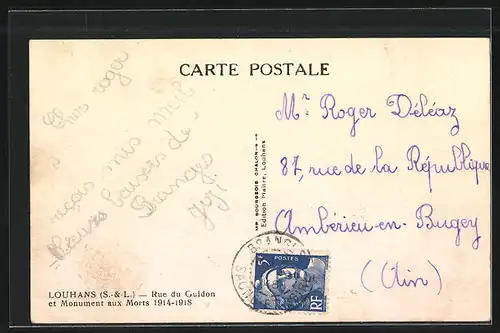 CARTE POSTALE
Cher roger
reçois mes meil
leures baisers de
Branges
Gigi
Mr Roger Déléaz
87, rue de la République
Ambérieu-en-Bugey
(Ain)
IMP BOURGEOIS CHALON-s-s
Edition Maître, Louhans
BRANGES
5F POSTES
RF
LOUHANS (S.-&-L.) — Rue du Guidon
et Monument aux Morts 1914-1918